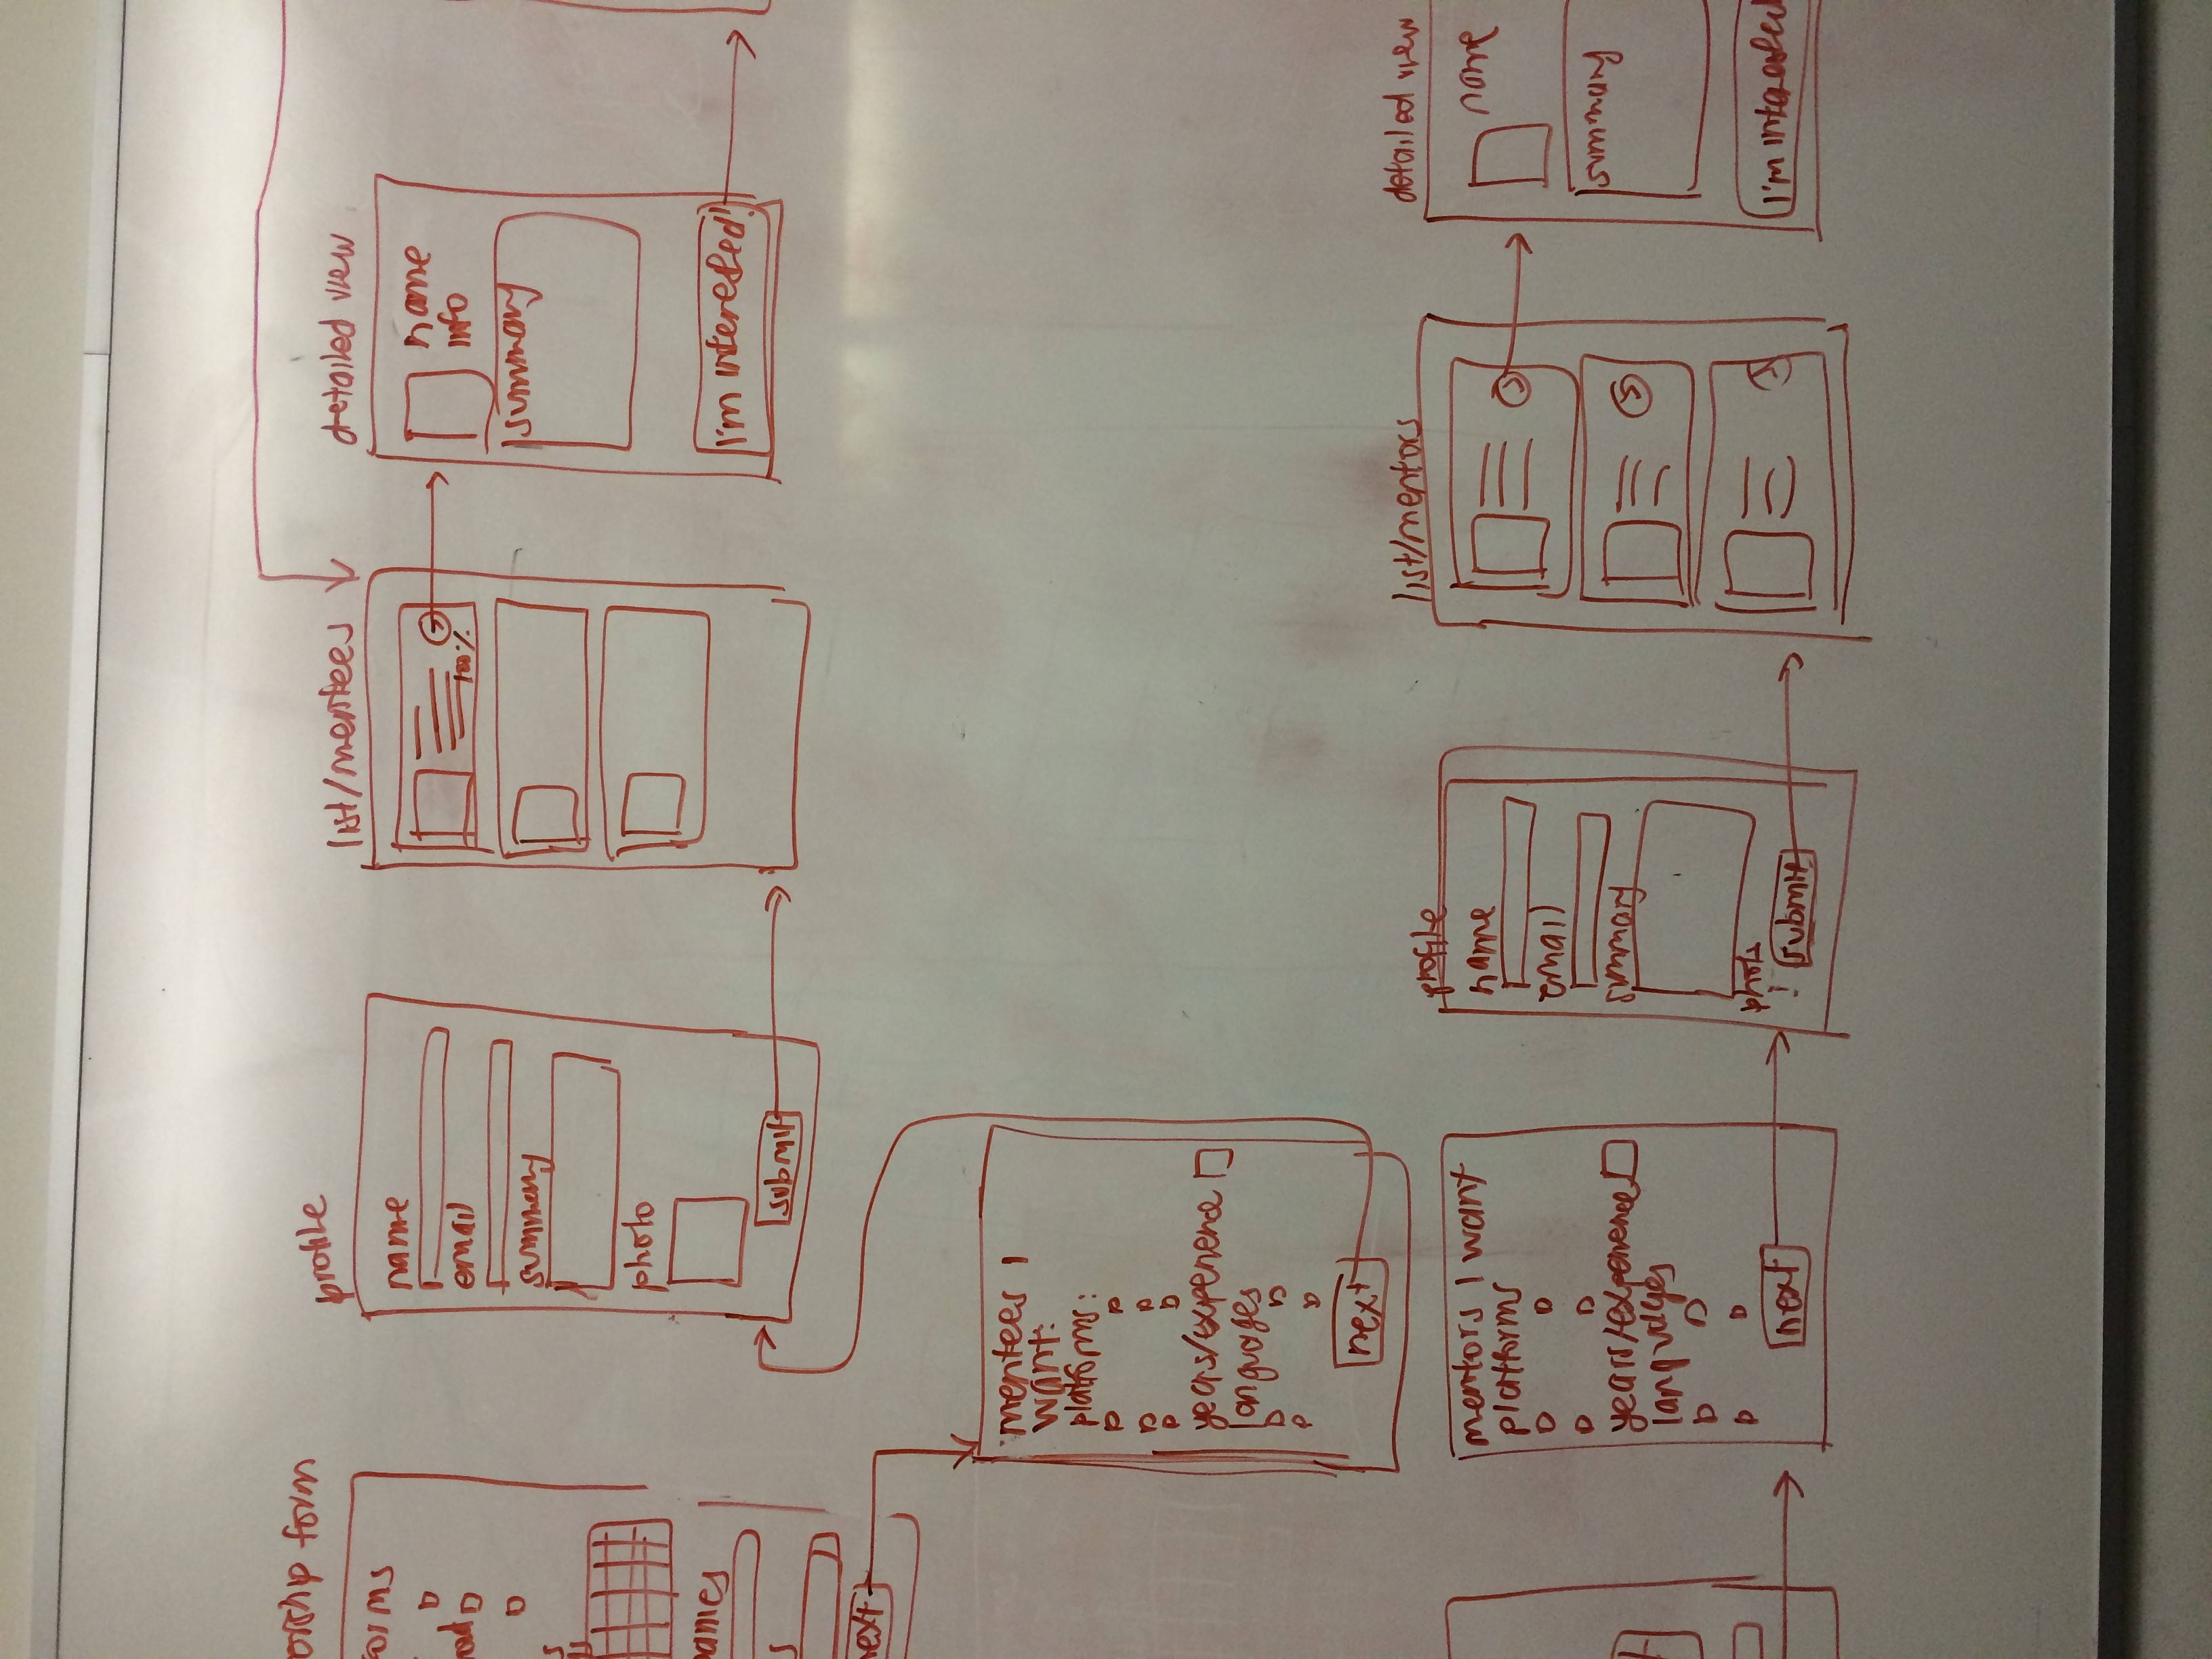 orship form
orms
oad
anies
s
next
profile
name
email
summary
photo
submit
list/mentees
100%
detailed view
name
info
summary
I'm interested!
mentees I
want:
platforms:
years/experience
languages
next
mentors I want
platforms
years/experience
languages
next
profile
name
email
summary
photo
submit
list/mentors
detailed view
name
summary
I'm interested